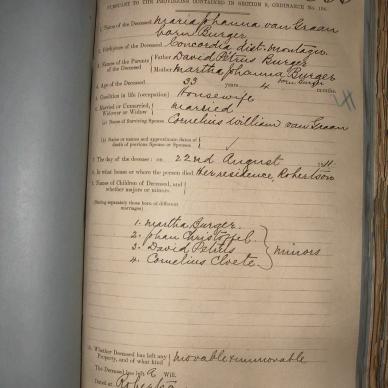 PURSUANT TO THE PROVISIONS CONTAINED IN SECTION 9, ORDINANCE No. 104.
1. Name of the Deceased Maria Johanna van Graan
born Burger
2. Birthplace of the Deceased Concordia dist: Montagu
3. Names of the Parents of the Deceased { Father David Petrus Burger
Mother Martha Johanna Burger
born Burger
4. Age of the Deceased 33 years 4 months
5. Condition in life (occupation) Housewife
6. Married or Unmarried, Widower or Widow } married
(a) Name of Surviving Spouse Cornelius William van Graan
(b) Name or names and approximate dates of death of previous Spouse or Spouses
7. The day of the decease: on 22nd August 1911
8. In what house or where the person died Her residence, Robertson
9. Names of Children of Deceased, and whether majors or minors.
(Stating separately those born of different marriages)
1. Martha Burger
2. Johan Christoffel
3. David Petrus
4. Cornelius Cloete
} minors
10. Whether Deceased has left any Property, and of what kind } movable & immovable
The Deceased has left a Will.
Dated at Robertson